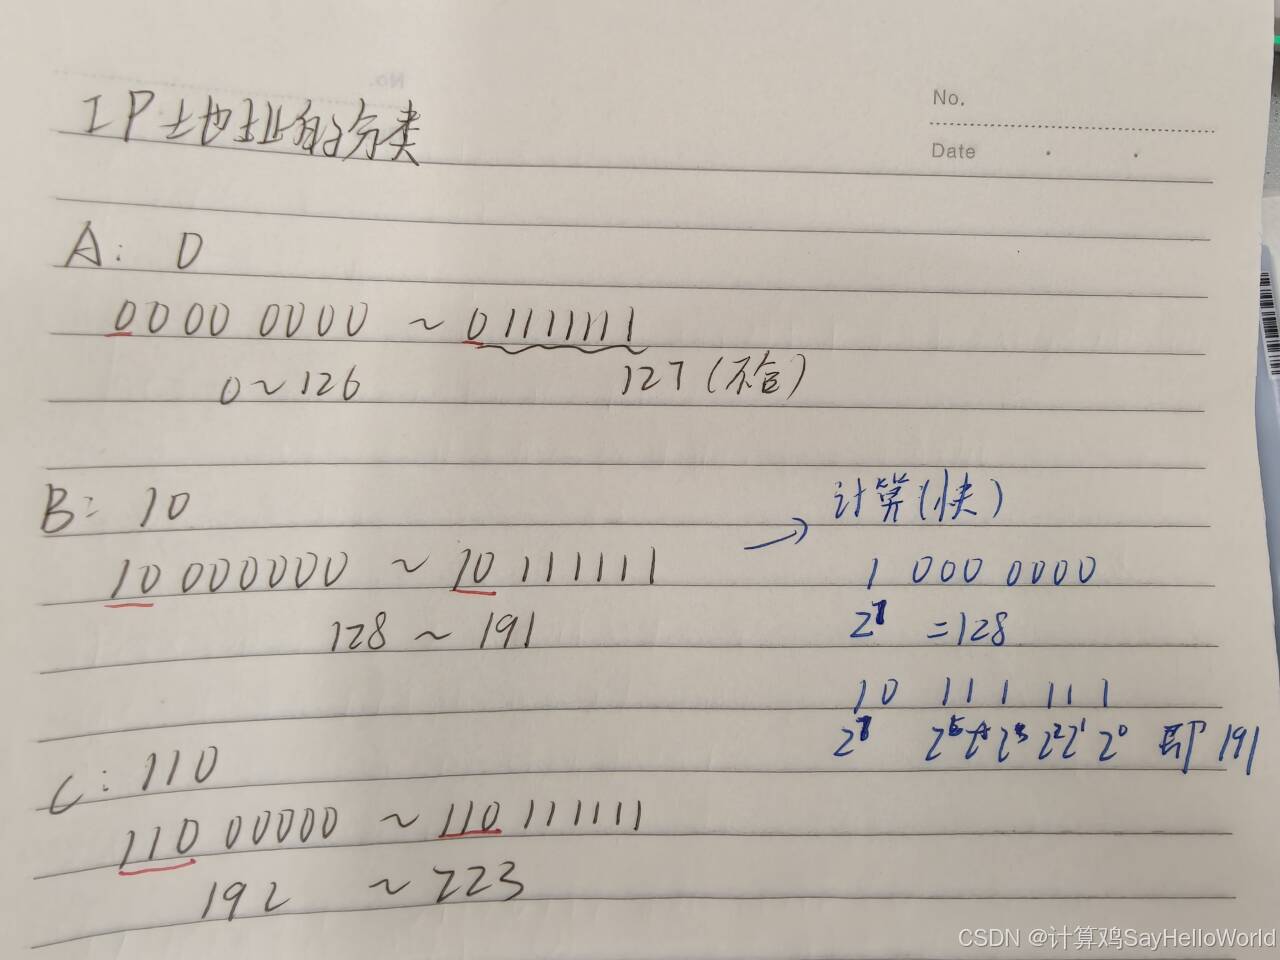 No.
Date
IP地址的分类
A: 0
0000 0000 ~ 01111111
0~126 127(不含)
B: 10
10 000000 ~ 10 111111
128 ~ 191
计算(快)
1 000 0000
2⁷ =128
10 111 111
2⁷ 2⁵ 2⁴ 2³ 2² 2¹ 2⁰ 即 191
C: 110
110 00000 ~ 110 111111
192 ~ 223
CSDN @计算鸡SayHelloWorld